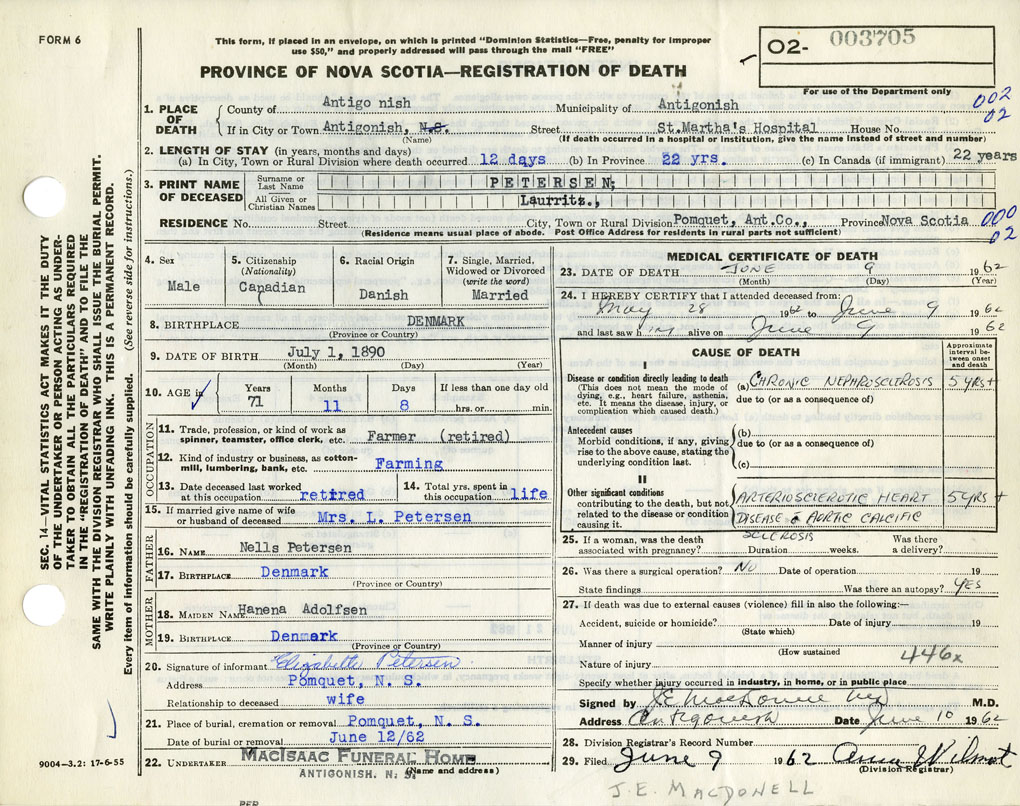 FORM 6
This form, if placed in an envelope, on which is printed "Dominion Statistics—Free, penalty for improper
use $50," and properly addressed will pass through the mail "FREE"
PROVINCE OF NOVA SCOTIA—REGISTRATION OF DEATH
02- 003705
For use of the Department only
002
02
1. PLACE OF DEATH
County of Antigo nish Municipality of Antigonish
If in City or Town Antigonish, N.S. Street St.Martha's Hospital House No.
(Name) (If death occurred in a hospital or institution, give the name instead of street and number)
2. LENGTH OF STAY (in years, months and days)
(a) In City, Town or Rural Division where death occurred 12 days (b) In Province 22 yrs. (c) In Canada (if immigrant) 22 years
3. PRINT NAME OF DECEASED
Surname or Last Name PETERSEN;
All Given or Christian Names Laurritz.,
RESIDENCE No. Street City, Town or Rural Division Pomquet, Ant.Co., Province Nova Scotia
(Residence means usual place of abode. Post Office Address for residents in rural parts not sufficient)
000
02
4. Sex
Male
5. Citizenship
(Nationality)
Canadian
6. Racial Origin
Danish
7. Single, Married,
Widowed or Divorced
(write the word)
Married
8. BIRTHPLACE DENMARK
(Province or Country)
9. DATE OF BIRTH July 1, 1890
(Month) (Day) (Year)
10. AGE in
Years Months Days If less than one day old
71 11 8 hrs. or min.
OCCUPATION
11. Trade, profession, or kind of work as
spinner, teamster, office clerk, etc. Farmer (retired)
12. Kind of industry or business, as cotton-
mill, lumbering, bank, etc. Farming
13. Date deceased last worked
at this occupation retired
14. Total yrs. spent in
this occupation life
15. If married give name of wife
or husband of deceased Mrs. L. Petersen
FATHER
16. NAME Nells Petersen
17. BIRTHPLACE Denmark
(Province or Country)
MOTHER
18. MAIDEN NAME Hanena Adolfsen
19. BIRTHPLACE Denmark
(Province or Country)
20. Signature of informant Elizabeth Petersen
Address Pomquet, N. S.
Relationship to deceased wife
21. Place of burial, cremation or removal Pomquet, N. S.
Date of burial or removal June 12/62
22. UNDERTAKER MACISAAC FUNERAL HOME
ANTIGONISH, N. S.
(Name and address)
MEDICAL CERTIFICATE OF DEATH
23. DATE OF DEATH JUNE 9 1962
(Month) (Day) (Year)
24. I HEREBY CERTIFY that I attended deceased from:
May 28 1962 to June 9 1962
and last saw him alive on June 9 1962
CAUSE OF DEATH
Approximate
interval be-
tween onset
and death
I
Disease or condition directly leading to death
(This does not mean the mode of
dying, e.g., heart failure, asthenia,
etc. It means the disease, injury, or
complication which caused death.)
(a) CHRONIC NEPHROSCLEROSIS 5 YRS+
due to (or as a consequence of)
Antecedent causes
Morbid conditions, if any, giving
rise to the above cause, stating the
underlying condition last.
(b)
due to (or as a consequence of)
(c)
II
Other significant conditions
contributing to the death, but not
related to the disease or condition
causing it.
ARTERIOSCLEROTIC HEART 5 YRS +
DISEASE c̄ AORTIC CALCIFIC
SCLEROSIS
25. If a woman, was the death
associated with pregnancy? Duration weeks. Was there
a delivery?
26. Was there a surgical operation? NO Date of operation 19
State findings Was there an autopsy? YES
27. If death was due to external causes (violence) fill in also the following:—
Accident, suicide or homicide? Date of injury 19
(State which)
Manner of injury
(How sustained
Nature of injury
446x
Specify whether injury occurred in industry, in home, or in public place
Signed by J E MacDonell M.D.
Address Antigonish Date June 10 1962
28. Division Registrar's Record Number
29. Filed June 9 1962 Anna Wilmot
(Division Registrar)
J.E. MACDONELL
SEC. 14—VITAL STATISTICS ACT MAKES IT THE DUTY
OF THE UNDERTAKER OR PERSON ACTING AS UNDER-
TAKER TO OBTAIN ALL THE PARTICULARS REQUIRED
IN THE "REGISTRATION OF DEATH" AND TO FILE THE
SAME WITH THE DIVISION REGISTRAR WHO SHALL ISSUE THE BURIAL PERMIT.
WRITE PLAINLY WITH UNFADING INK. THIS IS A PERMANENT RECORD.
Every item of information should be carefully supplied. (See reverse side for instructions.)
9004—3.2: 17-6-55
PER